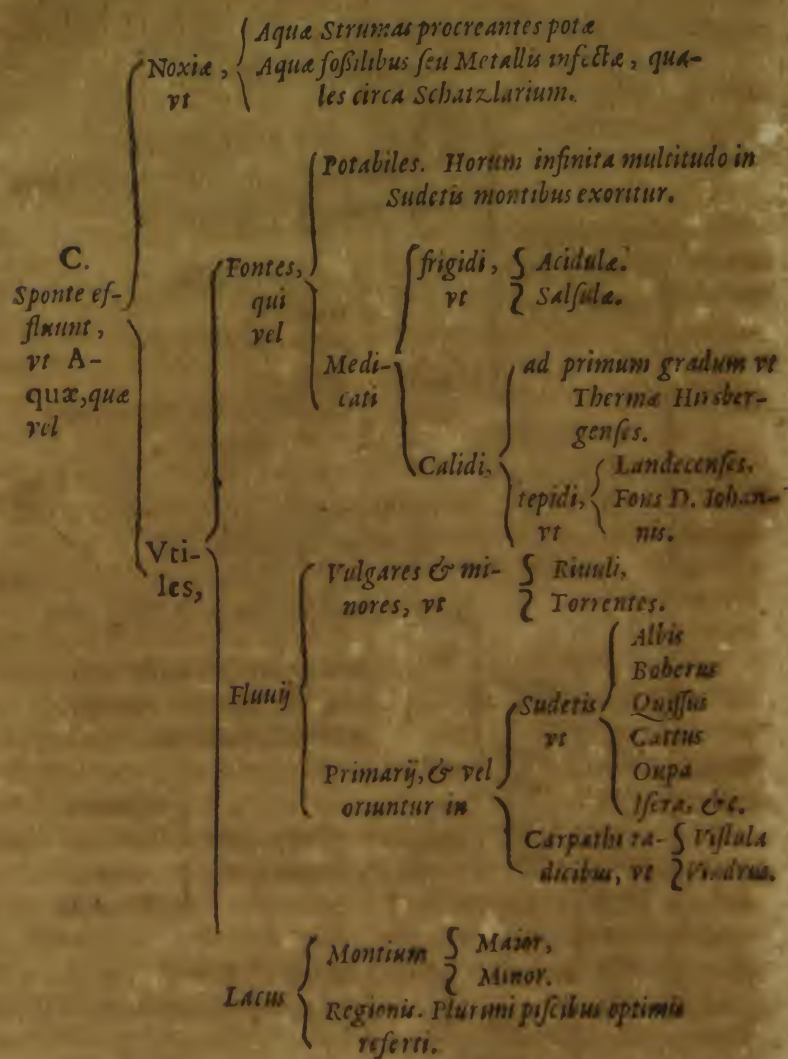 Aquæ Strumas procreantes potæ
Noxiæ, vt
Aquæ foßilibus ſeu Metallis infectæ, qua-
les circa Schatzlarium.
C.
Sponte ef-
fluunt,
vt A-
quæ, quæ
vel
Vti-
les,
Fontes,
qui
vel
Potabiles. Horum infinita multitudo in
Sudetis montibus exoritur.
Medi-
cati
frigidi, vt
Acidulæ.
Salſulæ.
Calidi,
ad primum gradum vt
Thermæ Hirsber-
genſes.
tepidi, vt
Landecenſes.
Fons D. Iohan-
nis.
Fluuij
Vulgares & mi-
nores, vt
Riuuli,
Torrentes.
Primarij, & vel
oriuntur in
Sudetis
vt
Albis
Boberus
Quiſſus
Cattus
Oupa
Iſera, &c.
Carpathi ra-
dicibus, vt
Viſtula
Viadrus.
Lacus
Montium
Maior,
Minor.
Regionis. Plurimi piſcibus optimis
referti.